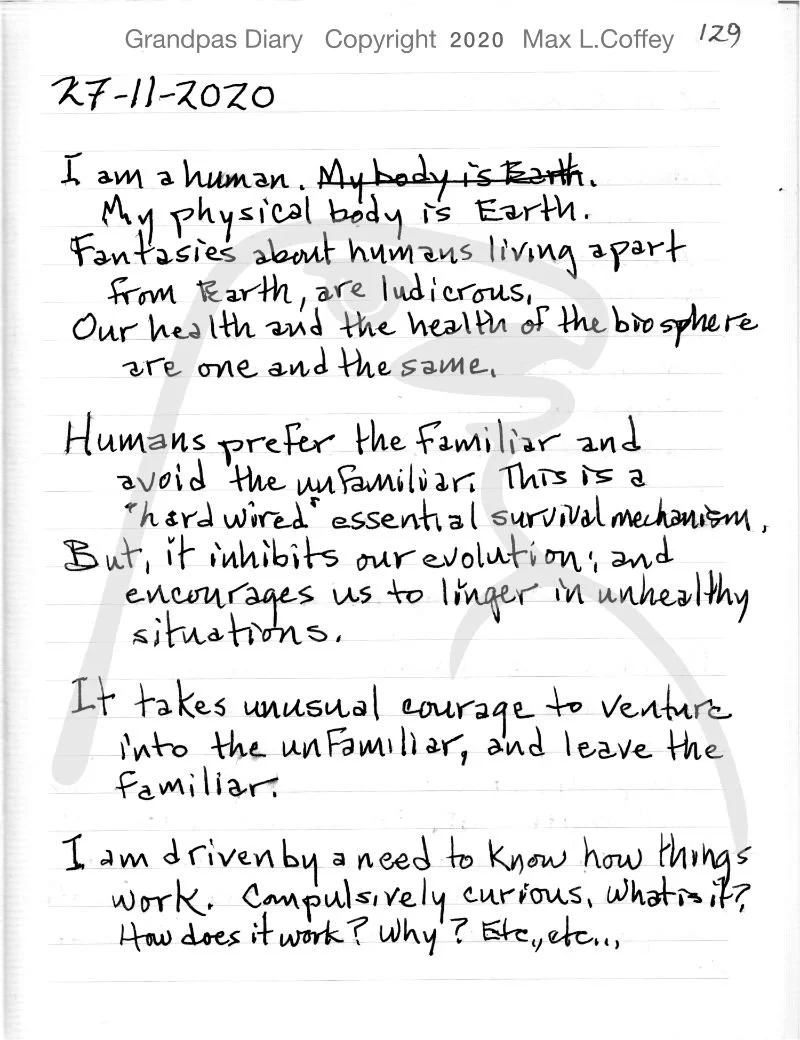 Grandpas Diary Copyright 2020 Max L.Coffey 129
27-11-2020
I am a human. My body is Earth.
My physical body is Earth.
Fantasies about humans living apart
from Earth, are ludicrous.
Our health and the health of the biosphere
are one and the same.
Humans prefer the familiar and
avoid the unfamiliar. This is a
"hard wired" essential survival mechanism.
But, it inhibits our evolution; and
encourages us to linger in unhealthy
situations.
It takes unusual courage to venture
into the unfamiliar, and leave the
familiar.
I am driven by a need to know how things
work. Compulsively curious. What is it?
How does it work? Why? Etc., etc...